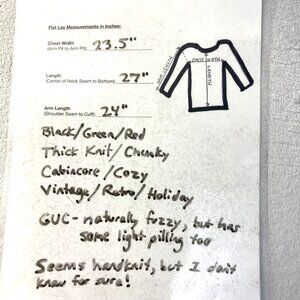 Flat Lay Measurements in Inches:
Chest Width
(Arm Pit to Arm Pit) 23.5"
Length
(Center of Neck Seam to Bottom) 27"
Arm Length
(Shoulder Seam to Cuff) 24"
ARM LENGTH
CHEST WIDTH
LENGTH
Black/Green/Red
Thick Knit/Chunky
Cabincore/Cozy
Vintage/Retro/Holiday
GUC- naturally fuzzy, but has
some light pilling too
Seems handknit, but I don't
know for sure!